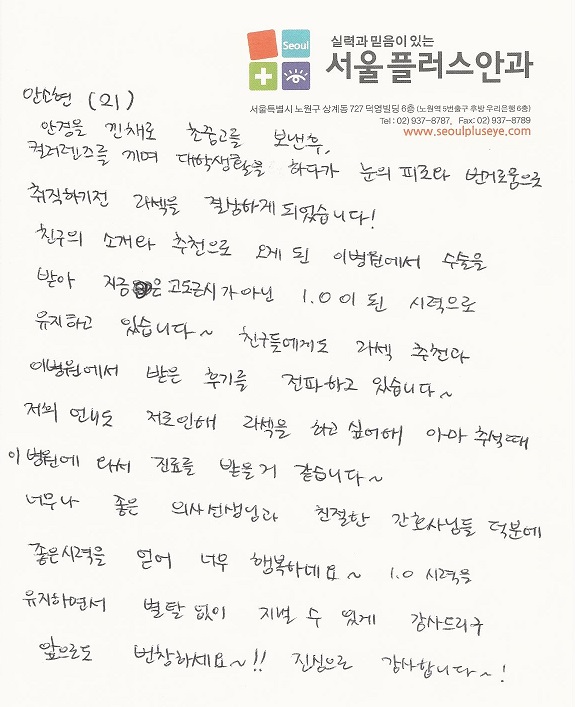 실력과 믿음이 있는
Seoul
서울플러스안과
서울특별시 노원구 상계동 727 덕영빌딩 6층 (노원역 5번출구 후방 우리은행 6층)
Tel : 02) 937-8787, Fax: 02) 937-8789
www.seoulpluseye.com
안소현 (21)
안경을 낀채로 초중고를 보낸후,
컬러렌즈를 끼며 대학생활을 하다가 눈의 피로와 번거로움으로
취직하기전 라섹을 결정하게 되었습니다!
친구의 소개와 추천으로 오게 된 이병원에서 수술을
받아 지금은 고도근시가아닌 1.0 이 된 시력으로
유지하고 있습니다~ 친구들에게도 라섹 추천과
이병원에서 받은 후기를 전파하고 있습니다~
저희 언니도 저로인해 라섹을 하고 싶어해 아마 추석때
이 병원에 와서 진료를 받을거 같습니다~
너무나 좋은 의사선생님과 친절한 간호사님들 덕분에
좋은시력을 얻어 너무 행복하네요~ 1.0 시력을
유지하면서 별탈 없이 지낼 수 있게 감사드리구
앞으로도 번창하세요~!! 진심으로 감사합니다~!